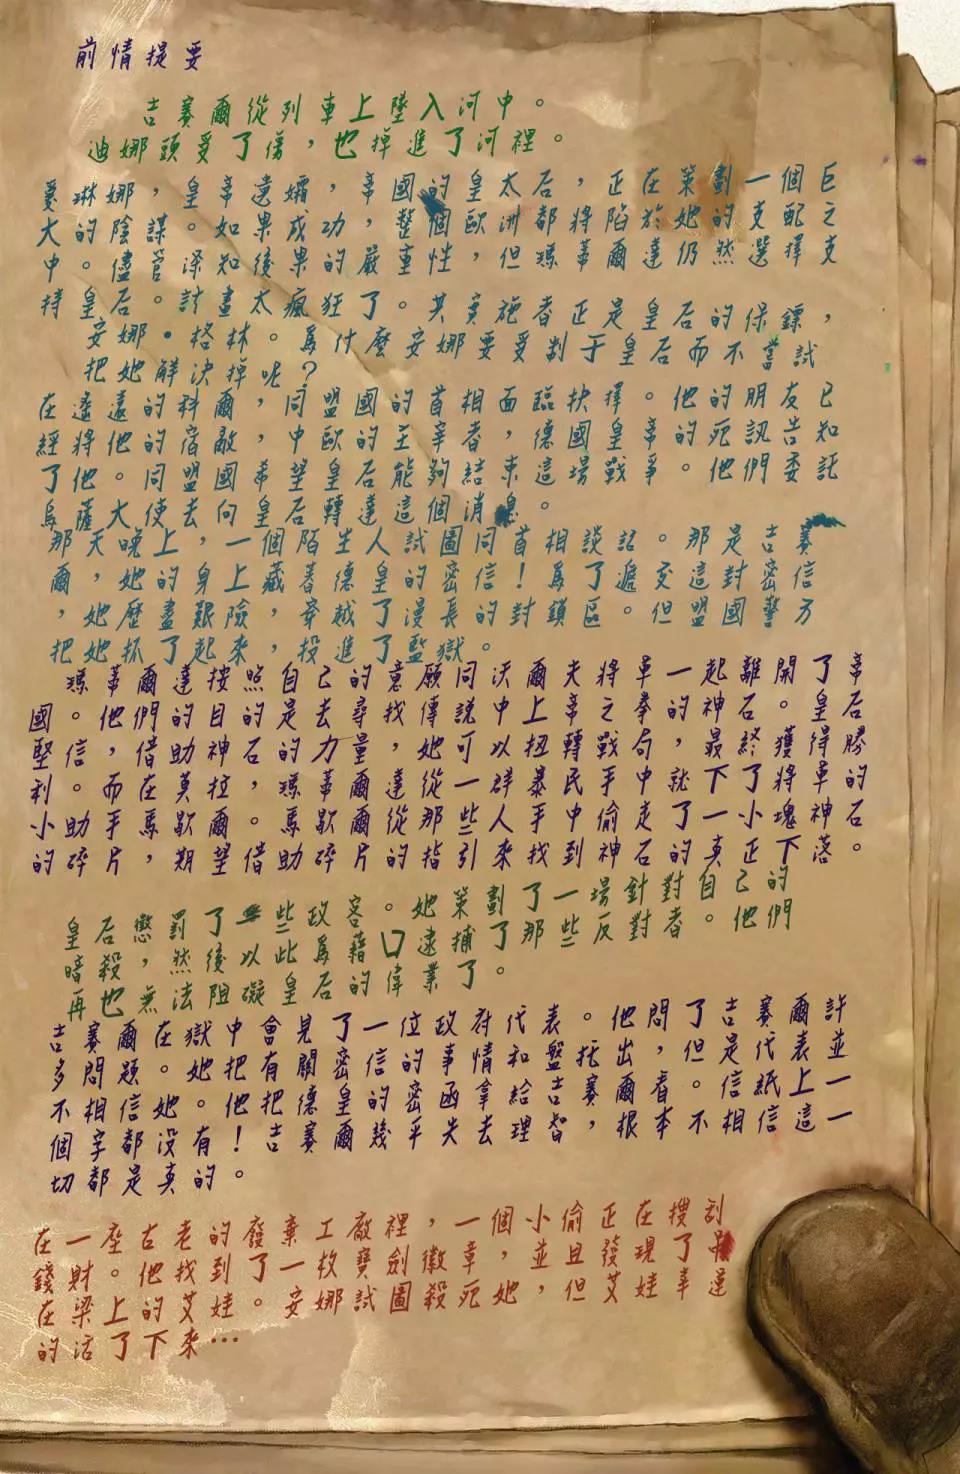 前情提要
吉賽爾從列車上墜入河中。
迪娜頭受了傷，也掉進了河裡。
愛琳娜，皇帝遺孀，帝國的皇太后，正在策劃一個巨
大的陰謀。如果成功，整個歐洲都將陷於她的支配之
中。儘管深知後果的嚴重性，但瑪蒂爾達仍然選擇支
持皇后。計畫太瘋狂了。其實施者正是皇后的保鏢，
安娜·格林。為什麼安娜要受制于皇后而不嘗試
把她解決掉呢？
在遙遠的科爾，同盟國的首相面臨抉擇。他的朋友已
經將他的宿敵，中歐的主宰者，德國皇帝的死訊告知
了他。同盟國希望皇后能夠結束這場戰爭。他們委託
烏薩大使去向皇后轉達這個消息。
那天晚上，一個陌生人試圖同首相談話。那是吉賽
爾，她的身上藏著德皇的密信！為了遞交這封密信
，她歷盡艱險，穿越了漫長的封鎖區。但盟國警方
把她抓了起來，投進了監獄。
瑪蒂爾達按照自己的意願同沃爾夫將軍一起離開了帝
國。他們的目的是去尋找傳說中上帝之拳的神石。皇后
堅信，借助神石的力量，她可以扭轉戰局，最終獲得勝
利。而在莫拉，瑪蒂爾達從一群暴民手中就下了將軍的
小助手馬歇爾。馬歇爾從那些人手中偷走了一小塊神石
的碎片，期望借助碎片的指引來找到神石的真正下落。
皇后懲罰了一些政客。她策劃了一場針對自己的
暗殺，然後以此為藉口逮捕了那些反對者。他們
再也無法阻礙皇后的偉業了。
吉賽爾在獄中會見了一位政府代表。他問了吉賽爾許
多問題。她把有關密信的事情和盤托出，但是代表並
不相信她。他把德皇的密函拿給吉賽爾看。信紙上一
個字都沒有！吉賽爾幾乎失去理智，根本不相信這一
切都是真的。
在一座古老的廢棄工廠裡，一個小偷正在搜刮
錢財。他找到了一枚寶劍徽章，並且發現了吊
在梁上的艾娃。安娜試圖殺死她，但艾娃幸運
的活了下來…